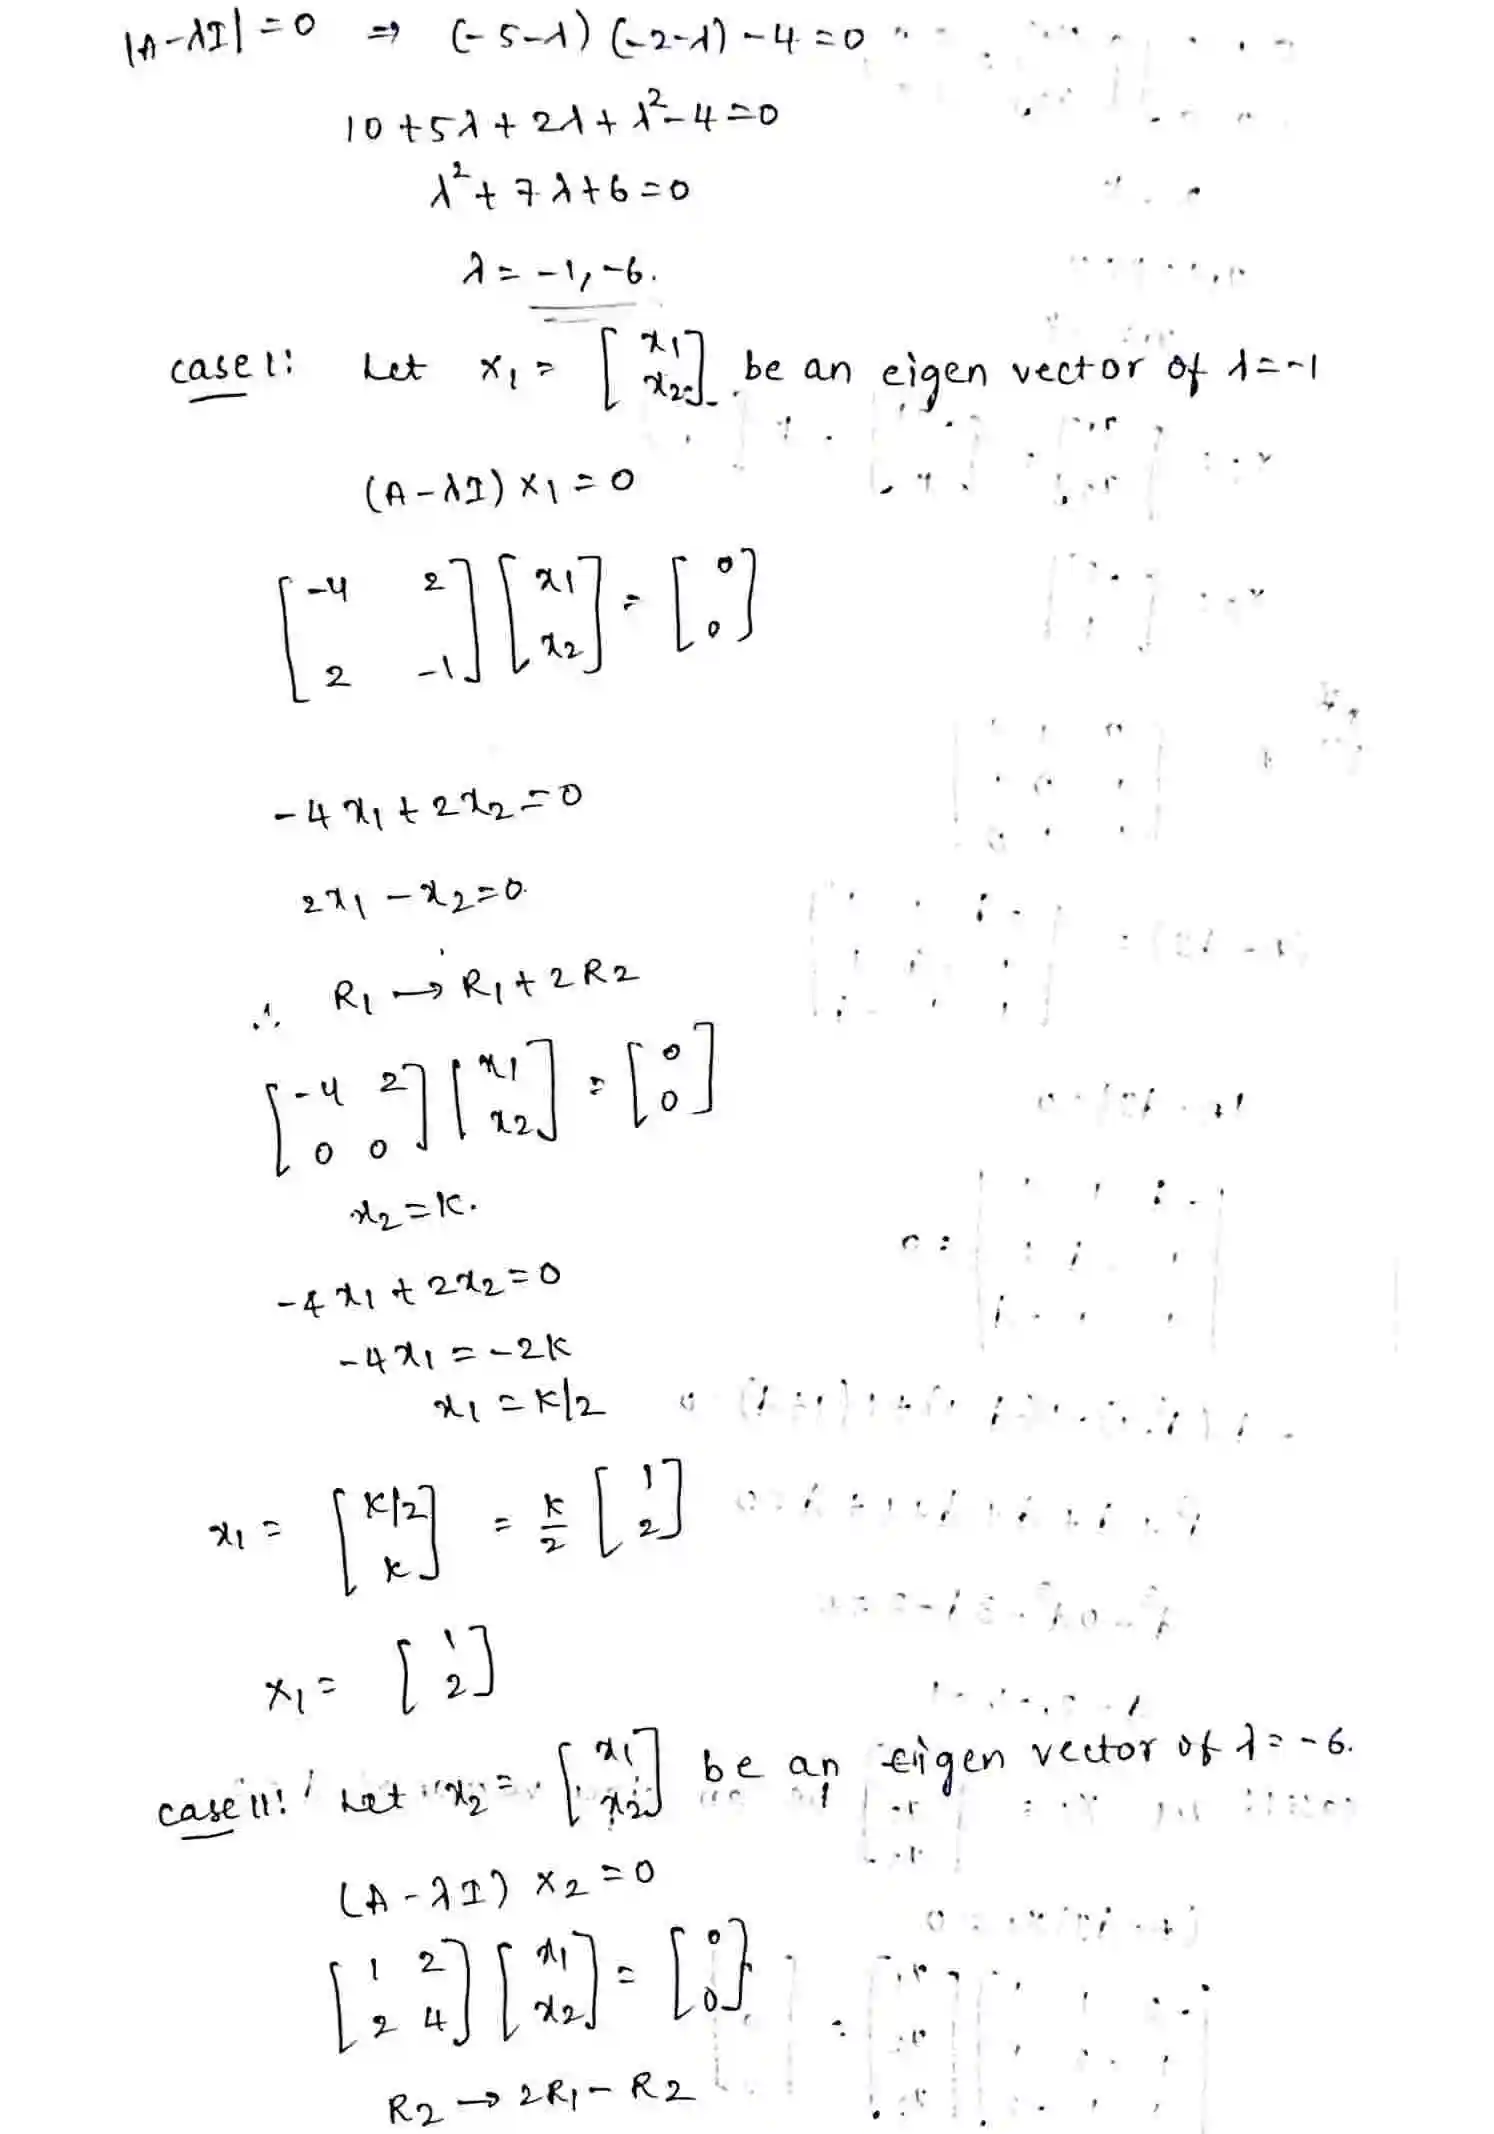 |A-λI| = 0 ⇒ (-5-λ) (-2-λ) - 4 = 0
10 + 5λ + 2λ + λ² - 4 = 0
λ² + 7λ + 6 = 0
λ = -1, -6.
case I: Let X₁ = [x₁ x₂] be an eigen vector of λ = -1
(A-λI) X₁ = 0
[-4 2; 2 -1] [x₁; x₂] = [0; 0]
-4x₁ + 2x₂ = 0
2x₁ - x₂ = 0.
∴ R₁ → R₁ + 2R2
[-4 2; 0 0] [x₁; x₂] = [0; 0]
x₂ = K.
-4x₁ + 2x₂ = 0
-4x₁ = -2K
x₁ = K/2
x₁ = [K/2; K] = K/2 [1; 2]
X₁ = [1; 2]
case II: Let x₂ = [x₁; x₂] be an eigen vector of λ = -6.
(A-λI) X₂ = 0
[1 2; 2 4] [x₁; x₂] = [0; 0]
R₂ → 2R₁ - R2